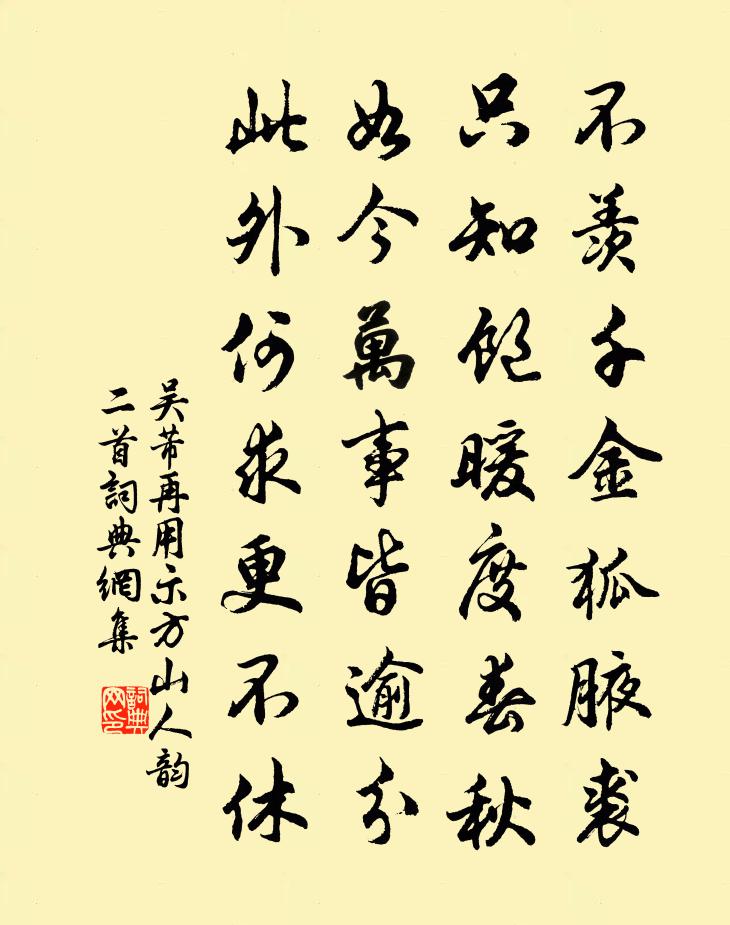 不羨千金狐腋裘
只知飽暖度春秋
如今萬事皆逾分
此外何求更不休
吴芾再用示方山人韵
二首詞典網集
詞典
网印